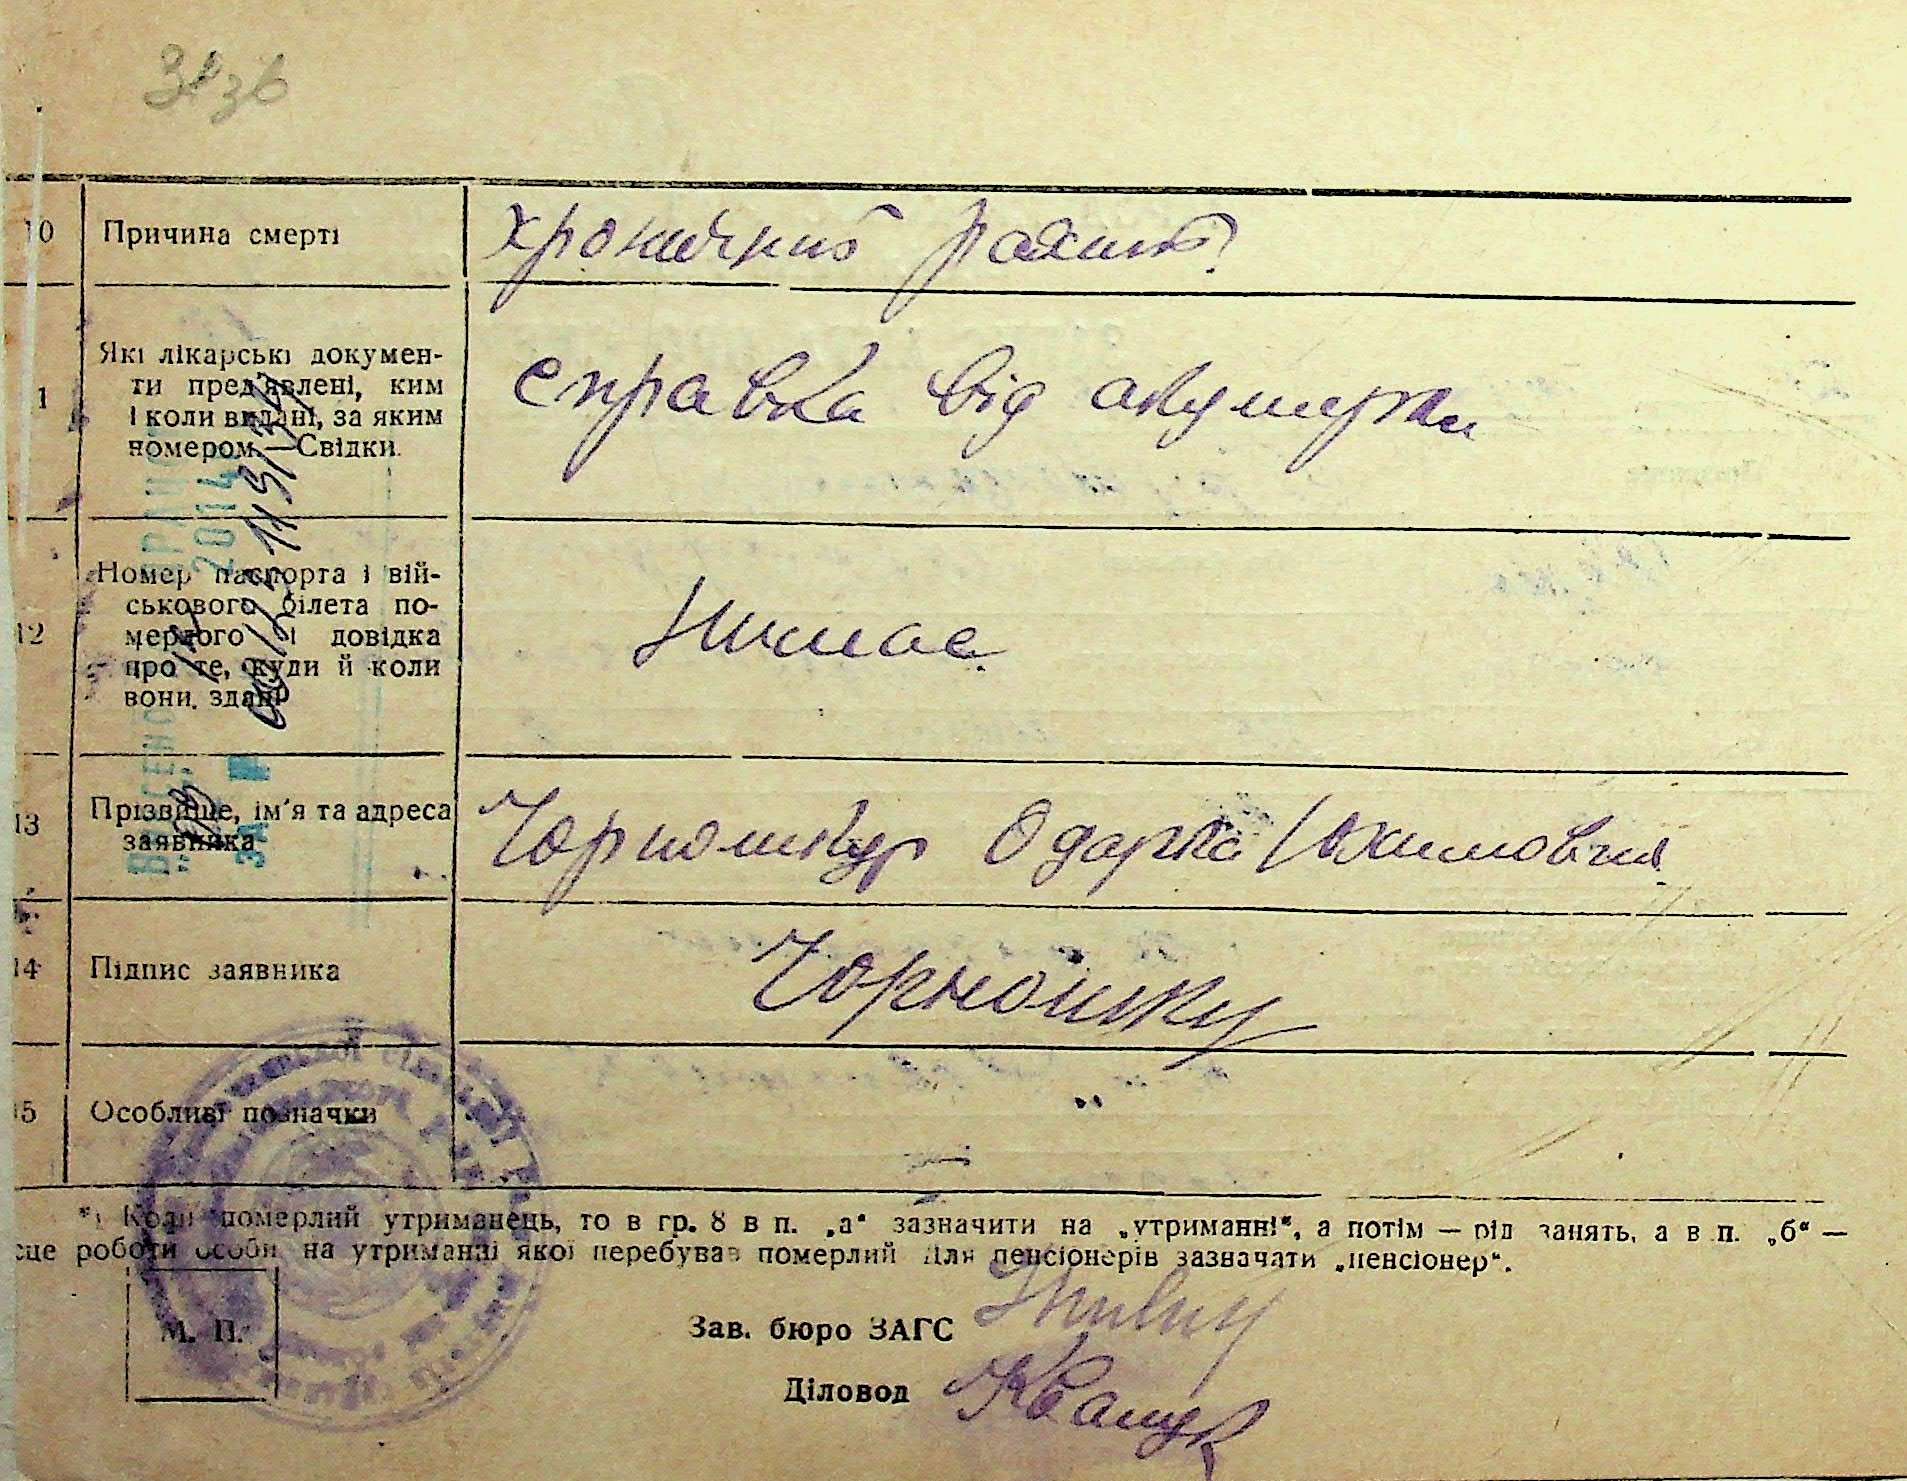 10 Причина смерті хроничний рахит.
Які лікарські докумен-
ти пред'явлені, ким
і коли видані, за яким
номером — Свідки.
1 справка від акушерки
Номер паспорта і вій-
ськового білета по-
12 мерлого і довідка
про те, куди й коли
вони здані
Нимає.
13 Прізвище, ім'я та адреса
заявника
Чорношкур Одарка Юхимовна
14 Підпис заявника Чорношку
15 Особливі позначки
*) Коли померлий утриманець, то в гр. 8 в п. „а" зазначити на „утриманні", а потім — рід занять, а в п. „б" —
сце роботи особи, на утриманні якої перебував померлий Для пенсіонерів зазначати „пенсіонер".
М. П.
Зав. бюро ЗАГС
Діловод
2014